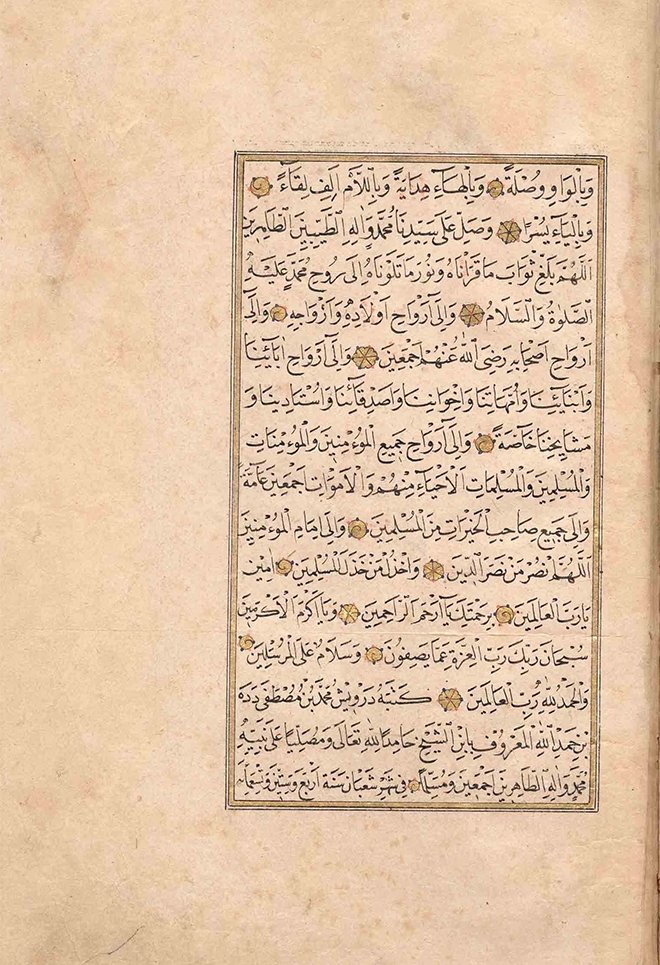 وَبِالْوَاوِ وُصْلَةً وَبِالْهَاءِ هِدَايَةً وَبِاللَّامِ اَلِفْ لِقَاءً
وَبِالْيَاءِ يُسْرًا وَصَلِّ عَلَى سَيِّدِنَا مُحَمَّدٍ وَاٰلِهِ الطَّيِّبِينَ الطَّاهِرِينَ
اَللّٰهُمَّ بَلِّغْ ثَوَابَ مَا قَرَأْنَاهُ وَنُورَ مَا تَلَوْنَاهُ اِلَى رُوحِ مُحَمَّدٍ عَلَيْهِ
الصَّلٰوةُ وَالسَّلَامُ وَاِلَى اَرْوَاحِ اَوْلَادِهِ وَاَزْوَاجِهِ وَاِلَى
اَرْوَاحِ اَصْحَابِهِ رَضِيَ اللّٰهُ عَنْهُمْ اَجْمَعِينَ وَاِلَى اَرْوَاحِ اٰبَائِنَا
وَاَبْنَائِنَا وَاُمَّهَاتِنَا وَاِخْوَانِنَا وَاَصْدِقَائِنَا وَاُسْتَادِينَا وَ
مَشَايِخِنَا خَاصَّةً وَاِلَى اَرْوَاحِ جَمِيعِ الْمُؤْمِنِينَ وَالْمُؤْمِنَاتِ
وَالْمُسْلِمِينَ وَالْمُسْلِمَاتِ الْاَحْيَاءِ مِنْهُمْ وَالْاَمْوَاتِ اَجْمَعِينَ عَامَّةً
وَاِلَى جَمِيعِ صَاحِبِ الْخَيْرَاتِ مِنَ الْمُسْلِمِينَ وَاِلَى اِمَامِ الْمُؤْمِنِينَ
اَللّٰهُمَّ انْصُرْ مَنْ نَصَرَ الدِّينَ وَاخْذُلْ مَنْ خَذَلَ الْمُسْلِمِينَ اٰمِينَ
يَا رَبَّ الْعَالَمِينَ بِرَحْمَتِكَ يَا اَرْحَمَ الرَّاحِمِينَ وَيَا اَكْرَمَ الْاَكْرَمِينَ
سُبْحَانَ رَبِّكَ رَبِّ الْعِزَّةِ عَمَّا يَصِفُونَ وَسَلَامٌ عَلَى الْمُرْسَلِينَ
وَالْحَمْدُ لِلّٰهِ رَبِّ الْعَالَمِينَ كَتَبَهُ دَرْوِيشْ مُحَمَّدْ بْنُ مُصْطَفَى دَدَهْ
بْنِ حَمْدِ اللّٰهِ الْمَعْرُوفِ بِابْنِ الشَّيْخِ حَامِدًا لِلّٰهِ تَعَالَى وَمُصَلِّيًا عَلَى نَبِيِّهِ
مُحَمَّدٍ وَاٰلِهِ الطَّاهِرِينَ اَجْمَعِينَ وَمُسَلِّمًا فِي شَهْرِ شَعْبَانَ سَنَةَ اَرْبَعَ وَسِتِّينَ وَتِسْعِمِائَةٍ